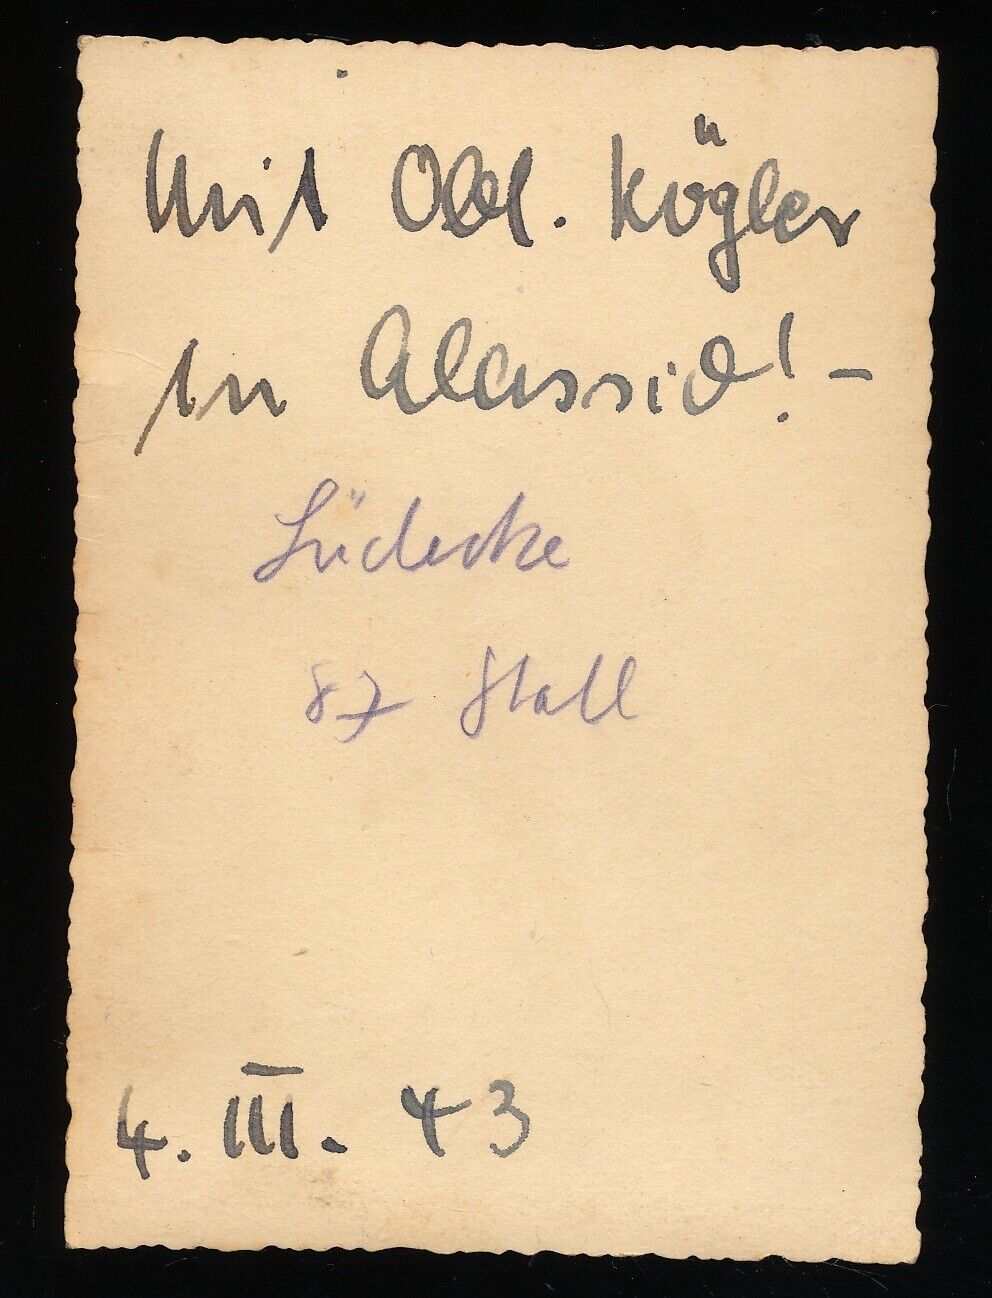 Mit Obl. Kögler
in Alassio! -
Lüdecke
87 Stall
4. III. 43